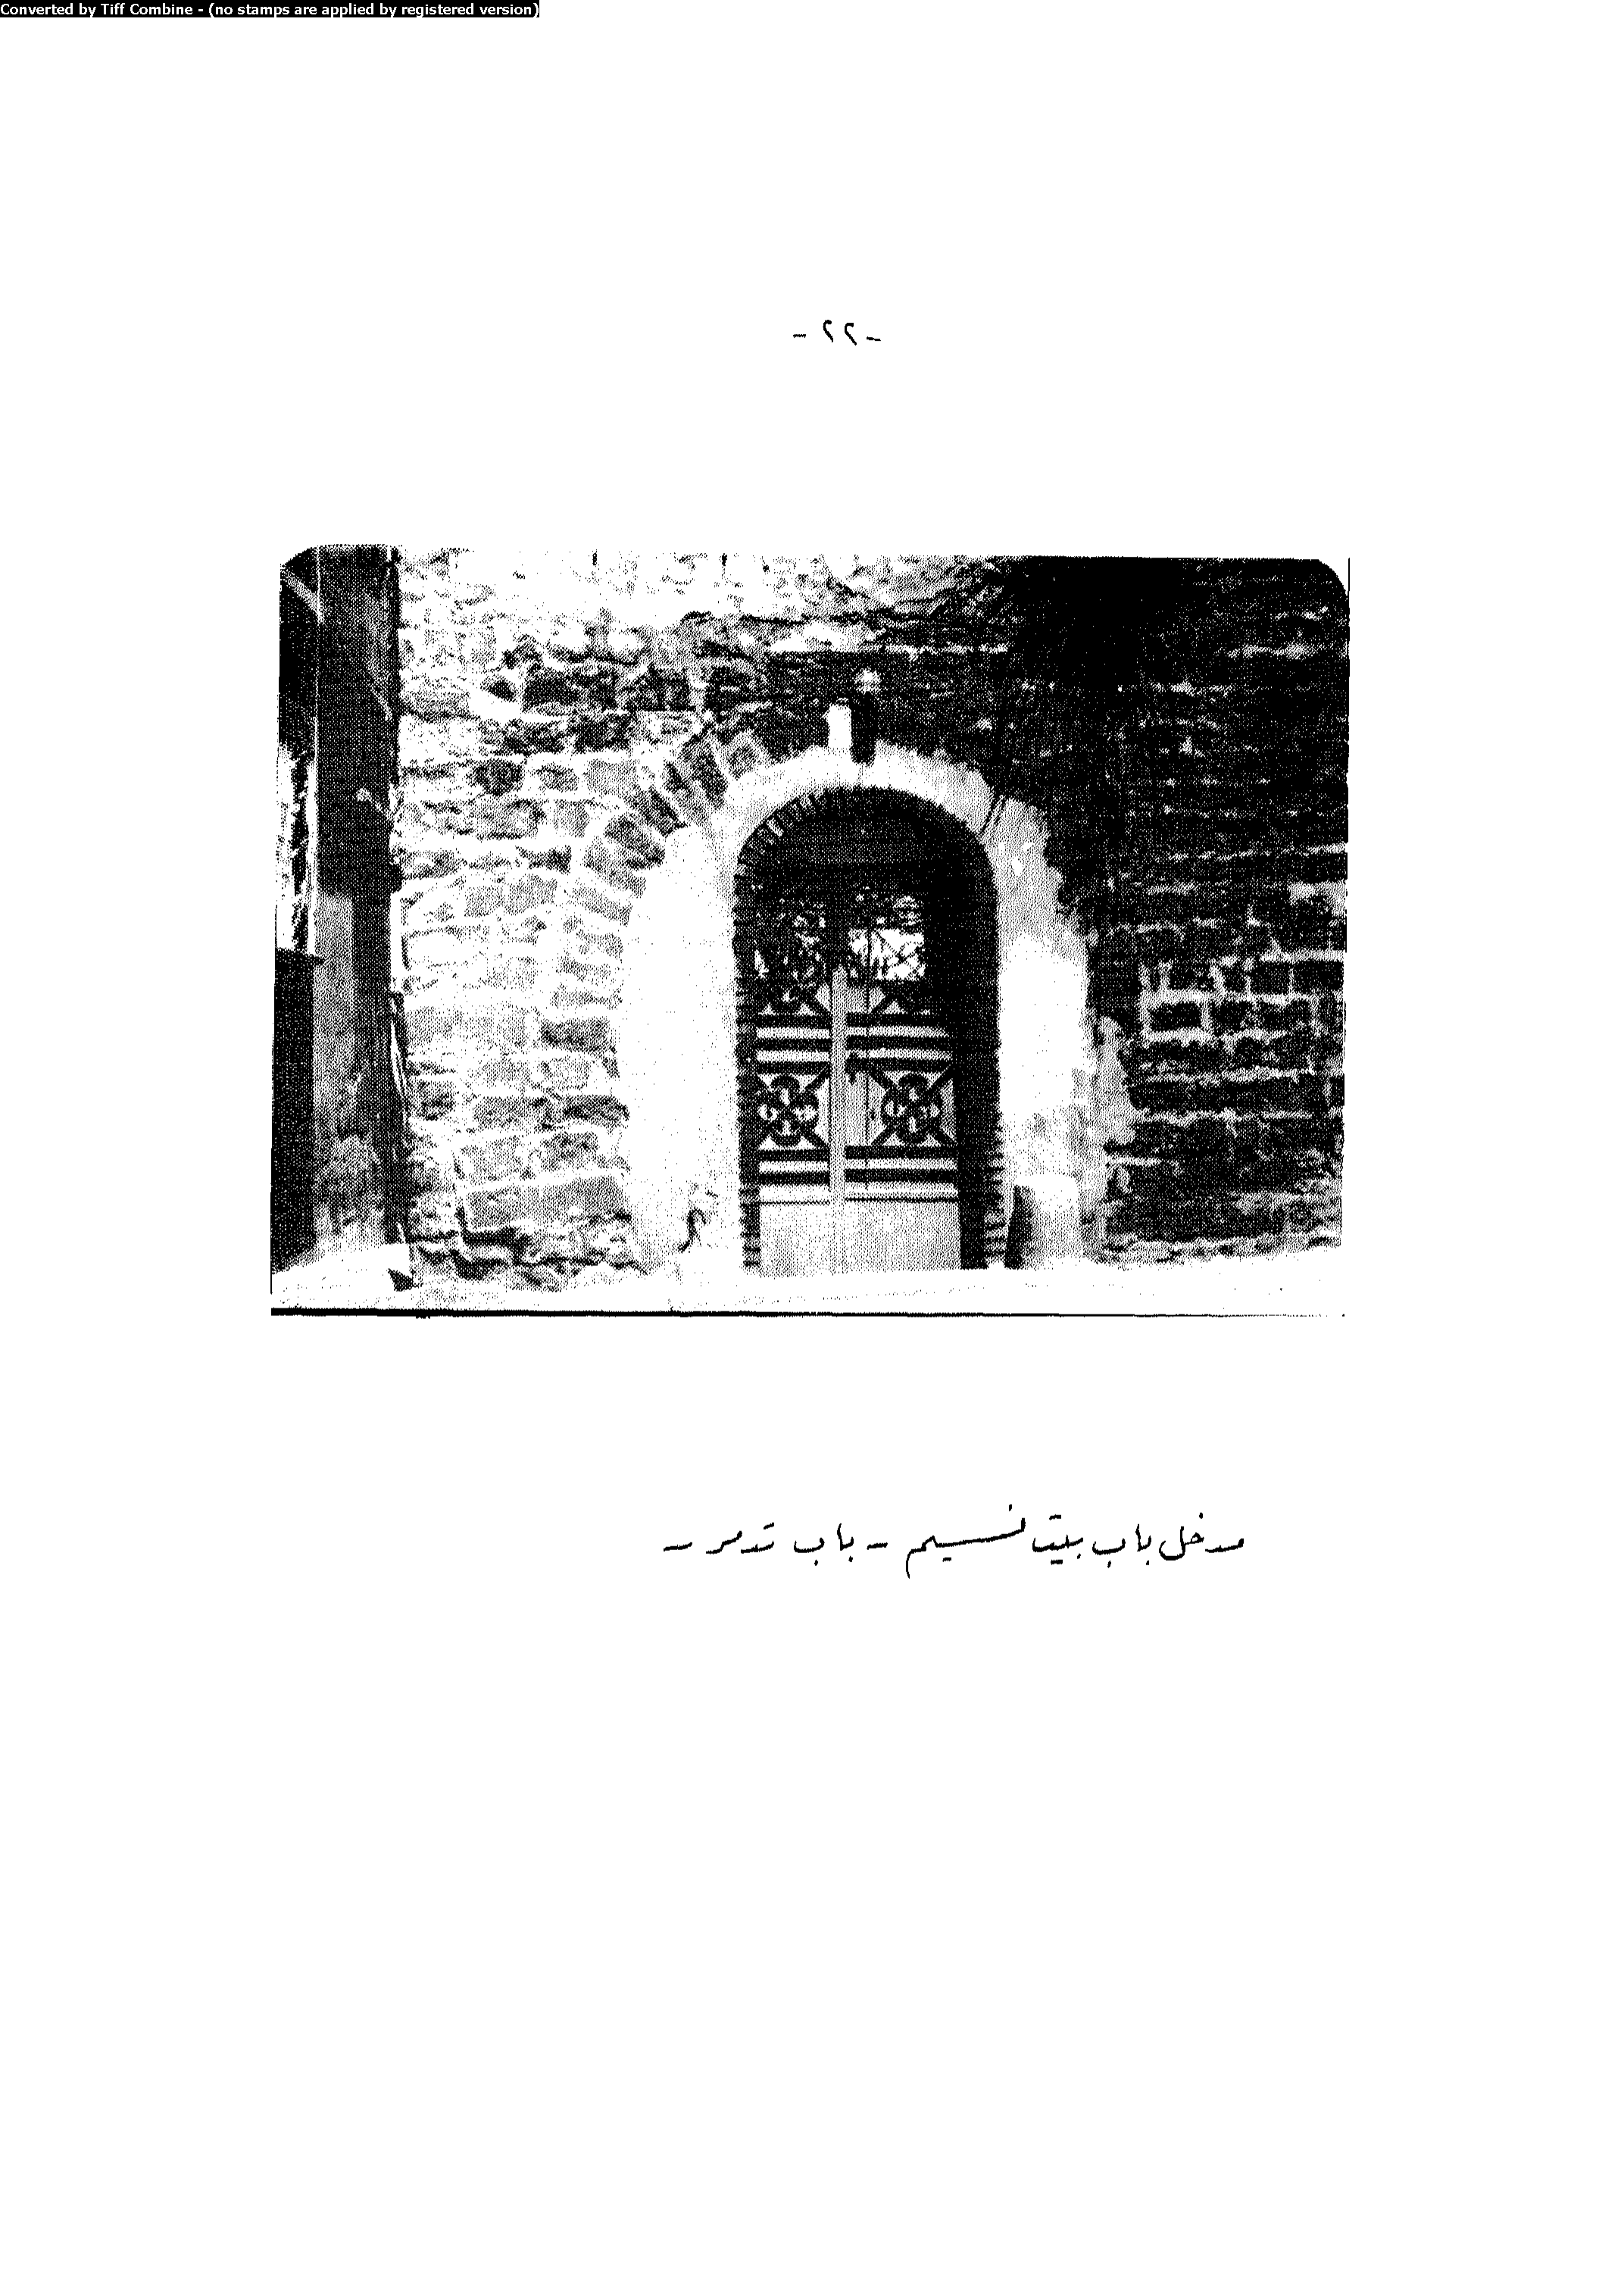 Converted by Tiff Combine - (no stamps are applied by registered version)
- ٢٢ -
مدخل باب بيت نسيم - باب تدمر -